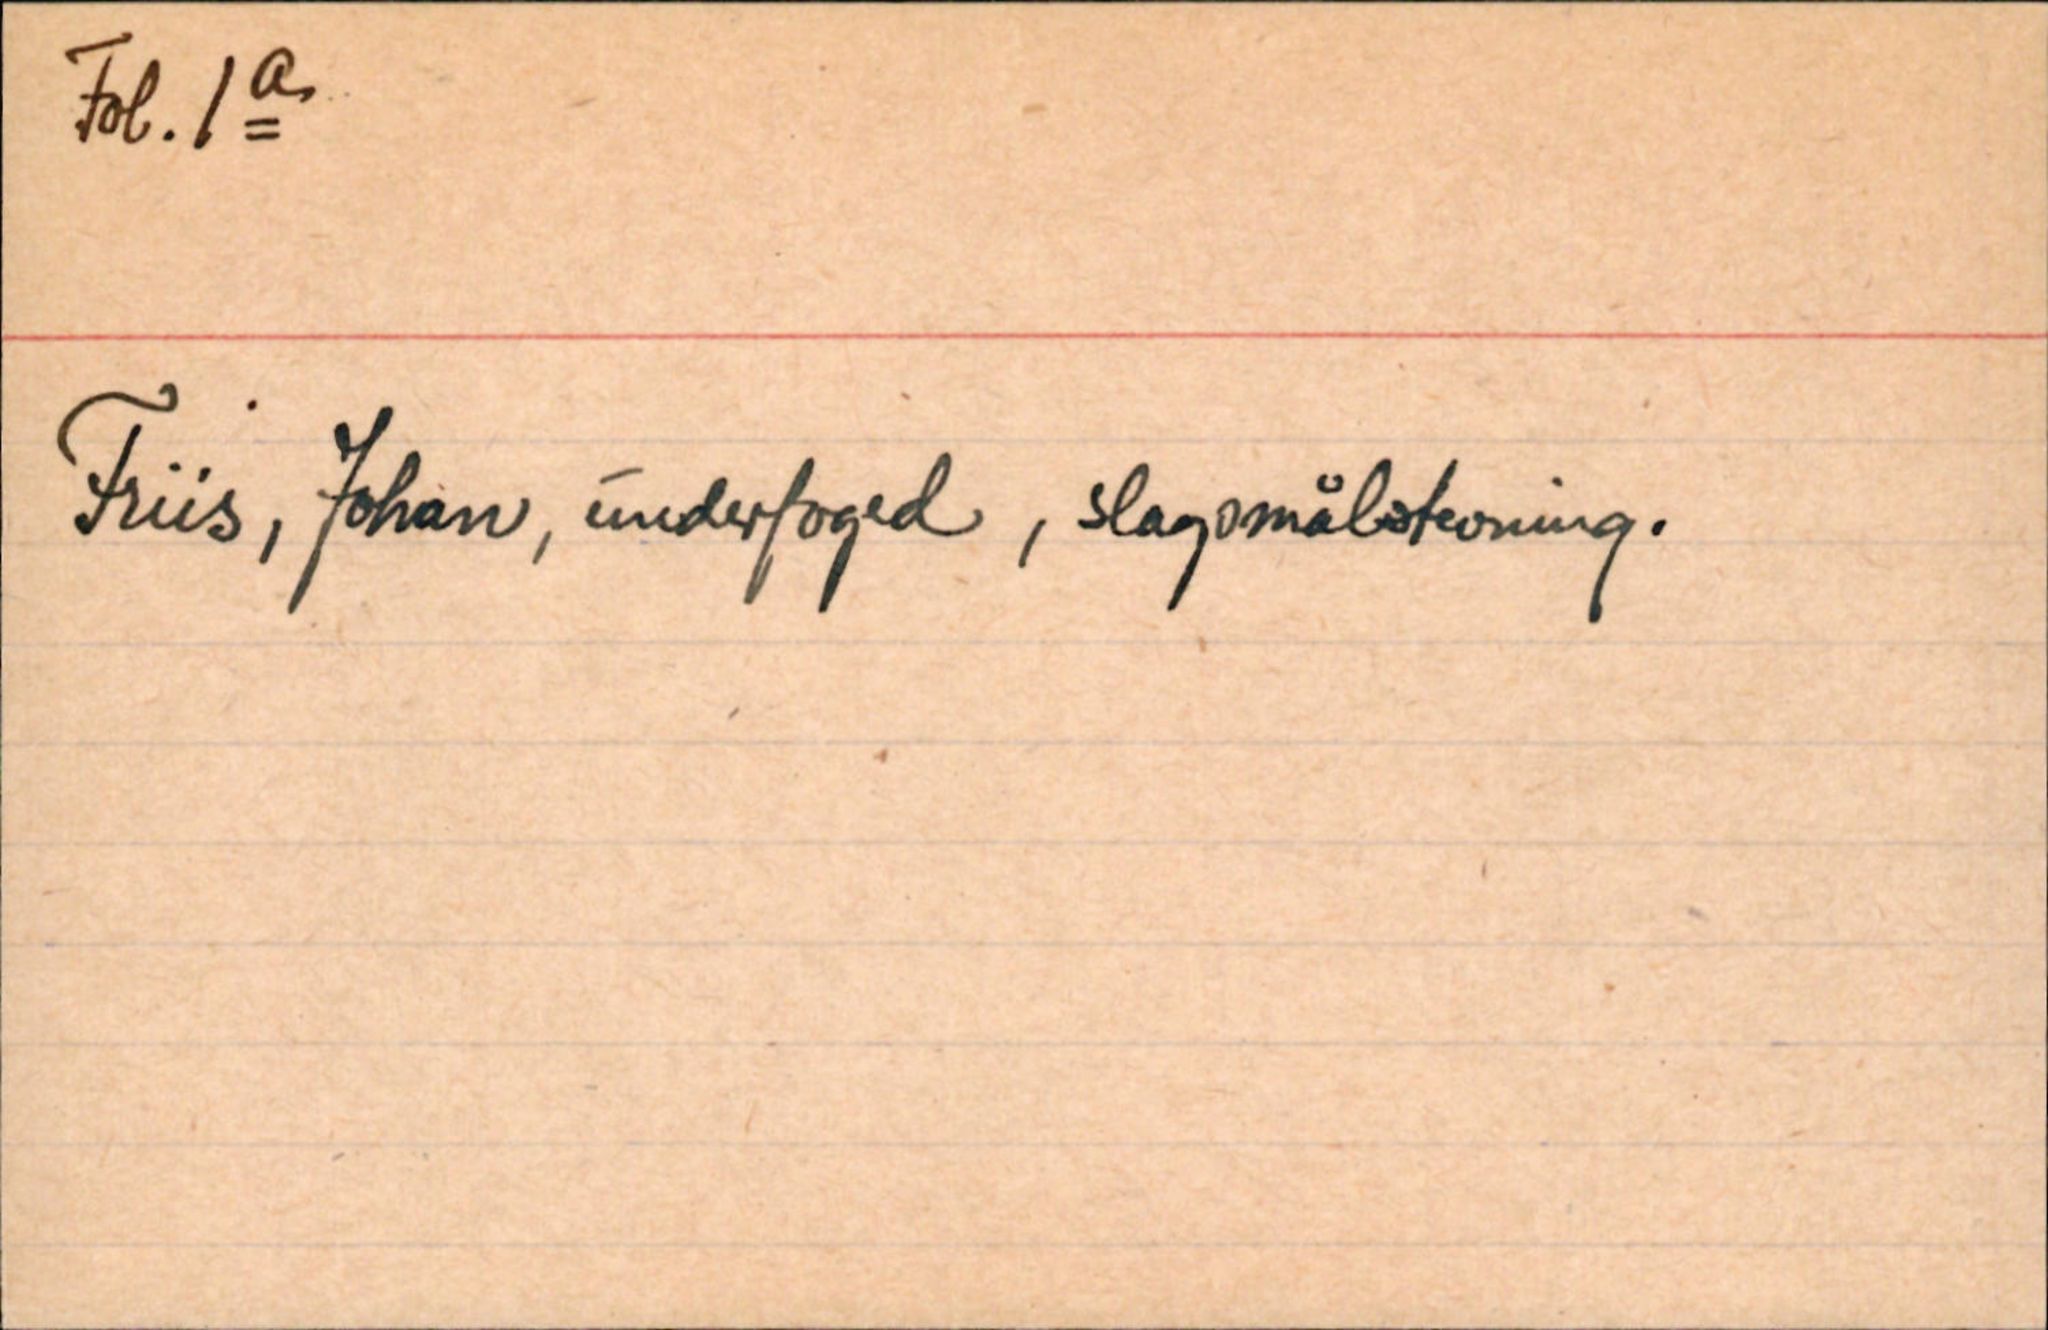 Fol. 1a
Friis, Johan, underfoged, slagsmålstevning.